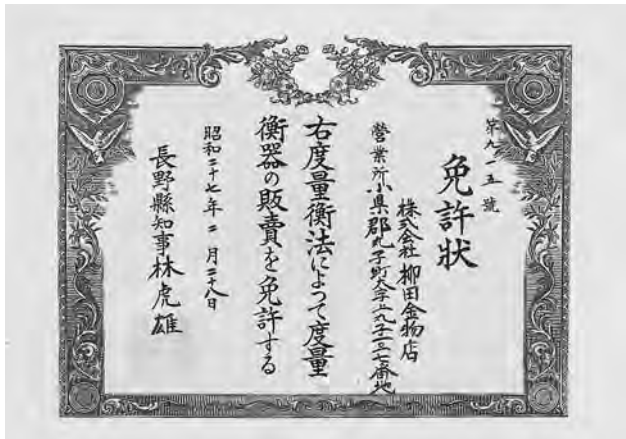 第九一五號
免許状
株式会社 柳田金物店
營業所 小県郡丸子町大字上丸子一三七番地
右度量衡法によつて度量
衡器の販賣を免許する
昭和二十七年二月二十八日
長野縣知事 林虎雄